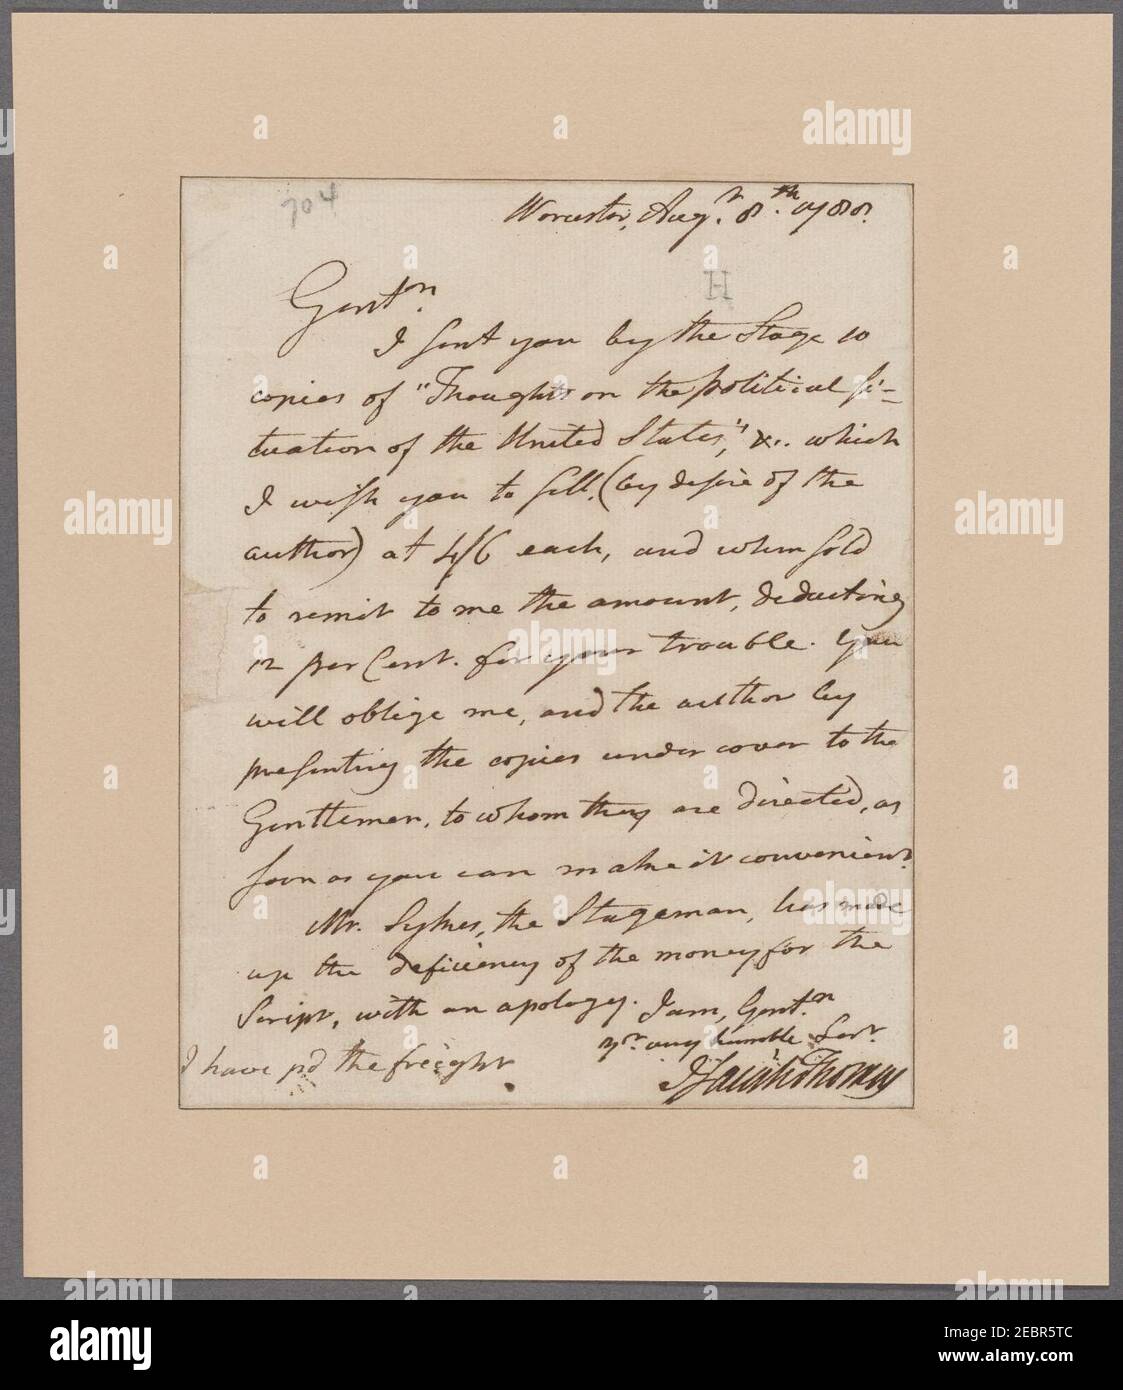 704
Worcester, Augt. 8th. 1788.
H
Gentn.
I sent you by the Stage 10
copies of "Thoughts on the political si-
tuation of the United States," &c. which
I wish you to sell, (by desire of the
author) at 4/6 each, and when sold
to remit to me the amount, deducting
12 per Cent. for your trouble. You
will oblige me, and the author by
presenting the copies under cover to the
Gentlemen, to whom they are directed, as
soon as you can make it convenient.
Mr. Sykes, the Stageman, has made
up the deficiency of the money for the
Script, with an apology. I am, Gentn.
yr. very humble Servt.
I have pd the freight
Isaiah Thomas
alamy
Image ID: 2EBR5TC
www.alamy.com